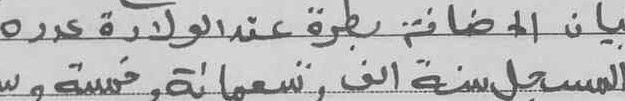 بيان الإضافة بطرة عقد الولادة عدده
المسجل سنة الف و تسعمائة و خمسة و